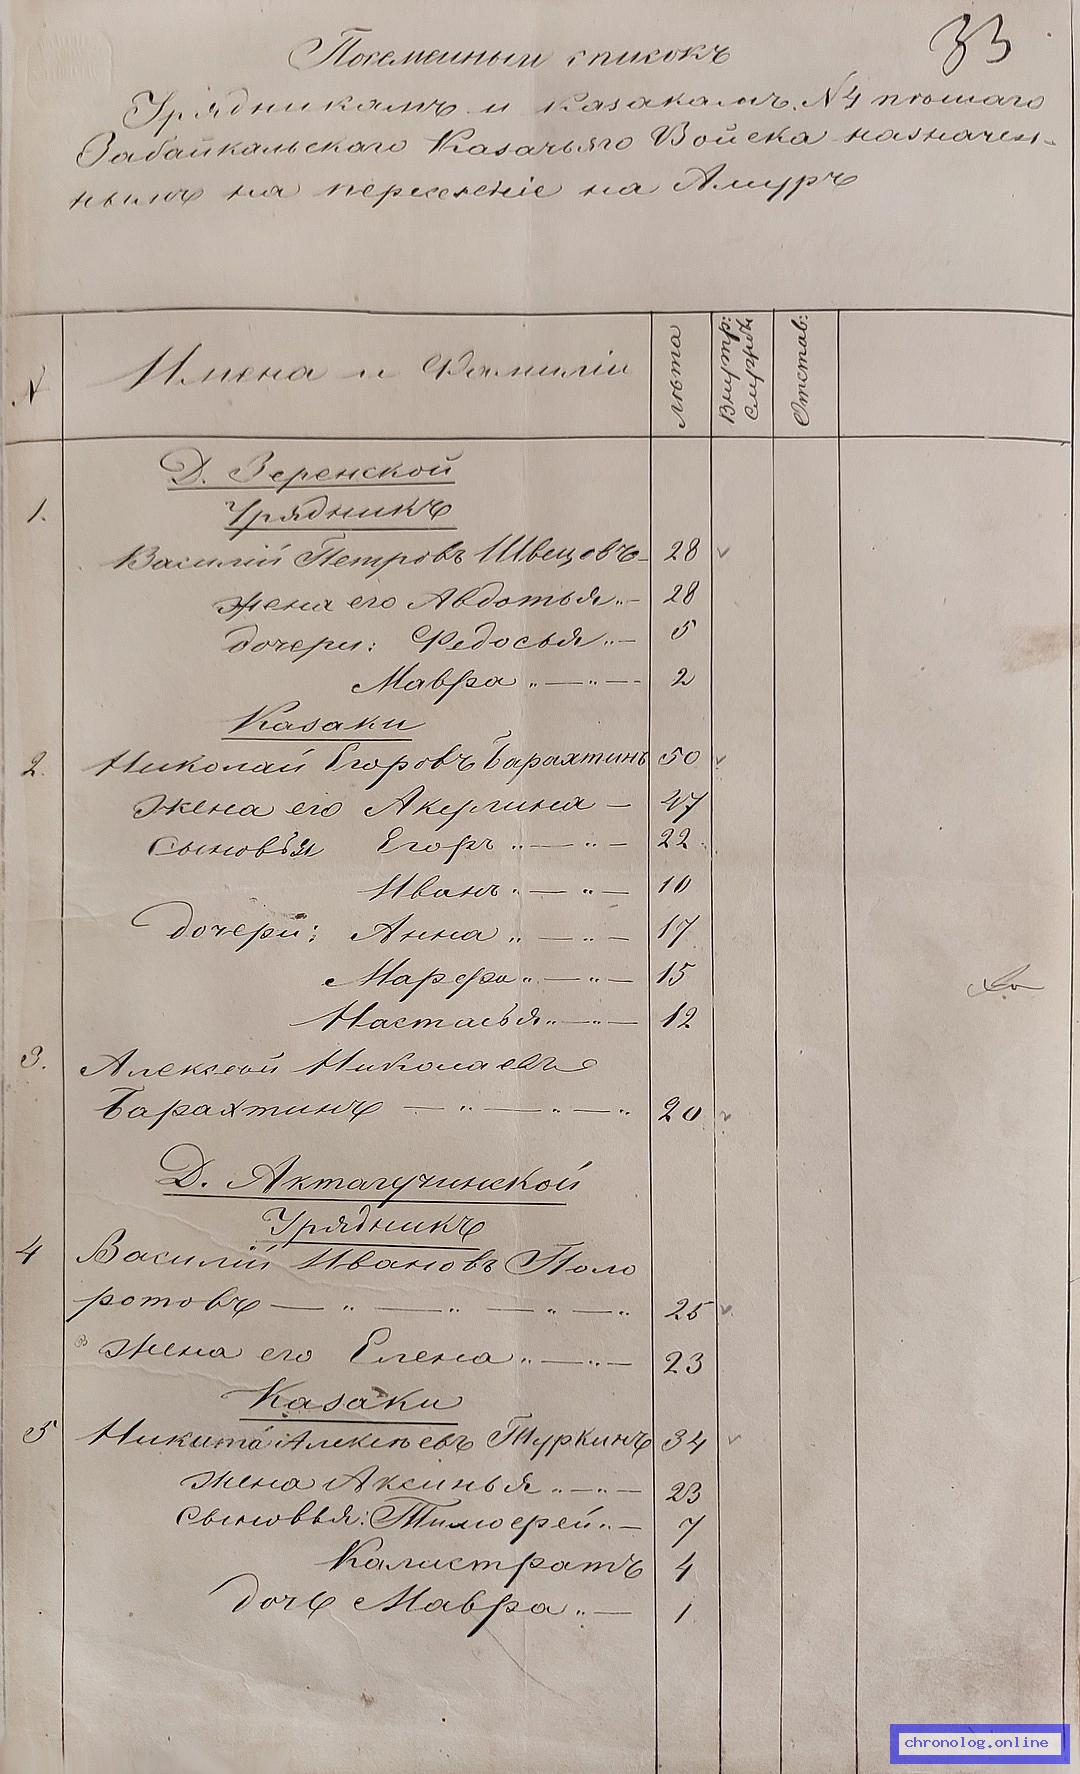 33
Посемейный списокъ
Урядникамъ и казакамъ N 4 пѣшаго
Забайкальскаго Казачьяго Войска назначен-
нымъ на переселеніе на Амуръ
N
Имена и Фамиліи
лѣта
Внутр: службѣ
Отстав:
Д. Зеренской
1.
Урядникъ
Василій Петровъ Швецовъ 28
жена его Авдотья „ — 28
дочери: Федосья „ — 5
Мавра „ — „ — 2
Казаки
2. Николай Егоровъ Барахтинъ 50
жена его Акулина — 47
сыновья Егоръ „ — „ — 22
Иванъ „ — „ — 10
дочери: Анна „ — „ — 17
Марфа „ — „ — 15
Настасья „ — „ — 12
3. Алексѣй Николаевъ
Барахтинъ — „ — „ — „ 20
Д. Актагучинской
Урядникъ
4 Василій Ивановъ Поло
ротовъ — „ — „ — „ — „ 25
жена его Елена „ — „ — 23
Казаки
5 Никита Алексѣевъ Туркинъ 34
жена Аксинья „ — „ — 23
сыновья: Тимофей „ — 7
Калистратъ 4
дочь Мавра „ — 1
chronolog.online